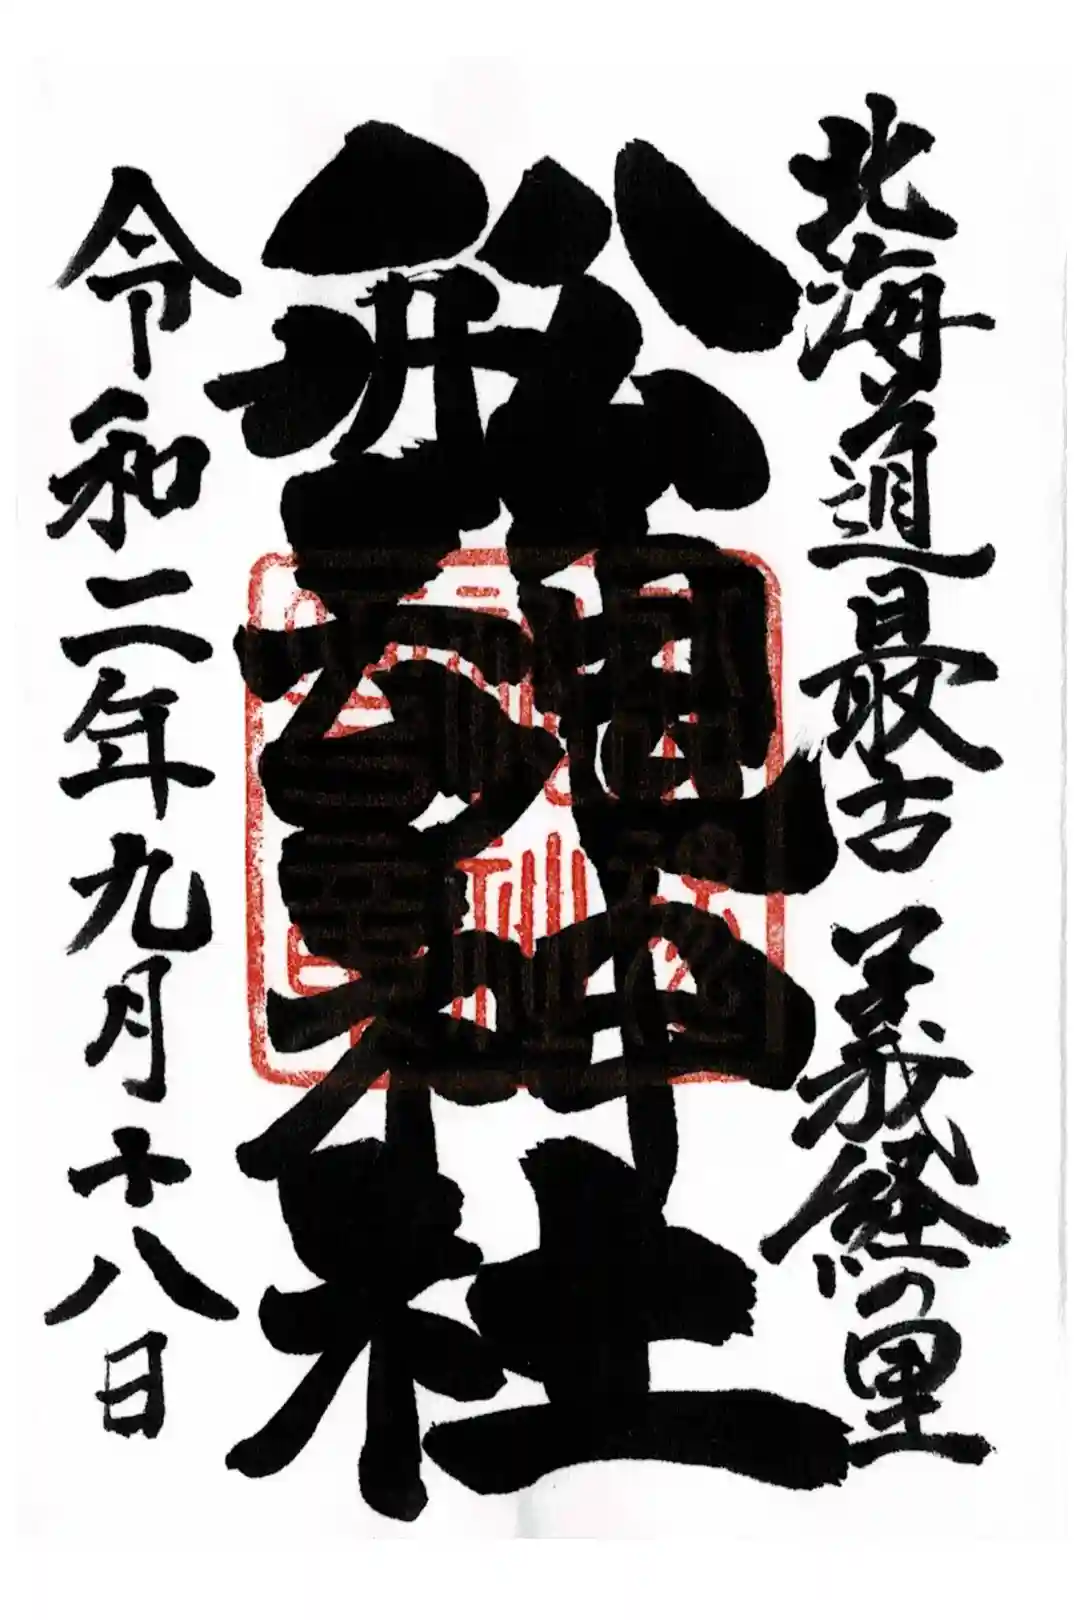 北海道最古 義経の里
船魂神社
令和二年九月十八日